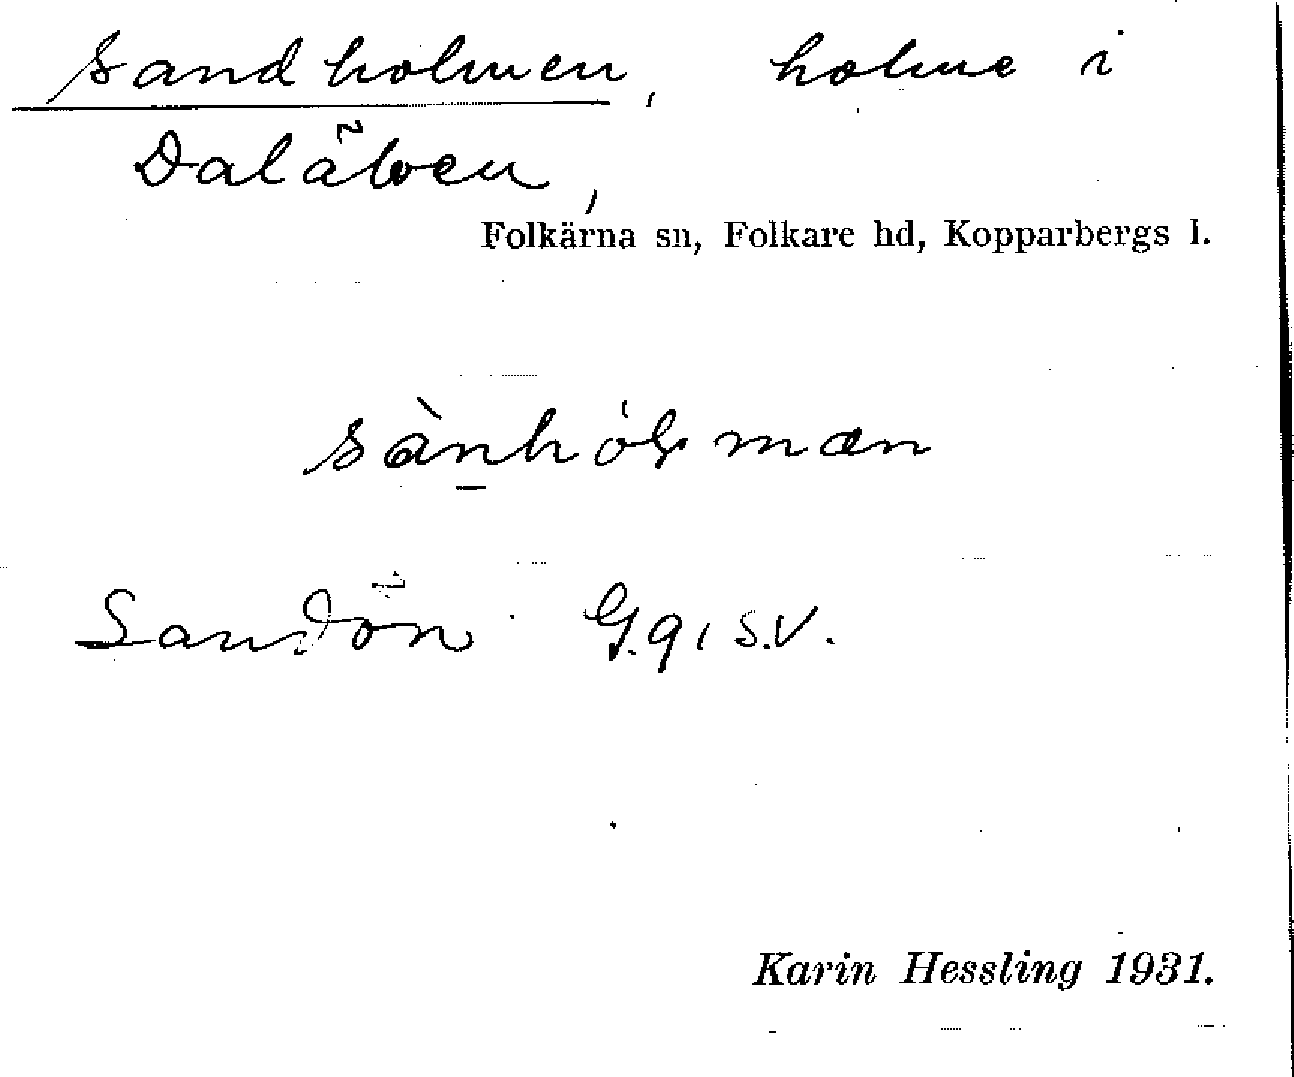 Sandholmen, holme i
Dalälven,
Folkärna sn, Folkare hd, Kopparbergs l.
sànhólmæn
Sandön G.q, s.v.
Karin Hessling 1931.